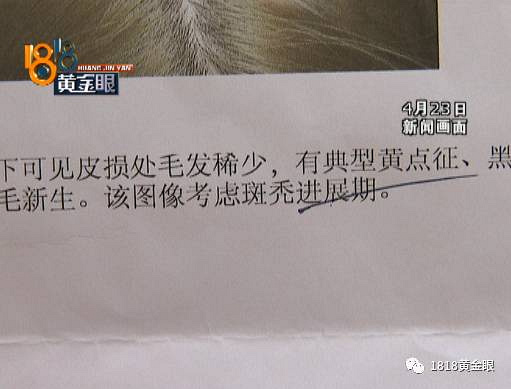 1818
HUANG JIN YAN
黄金眼
4月23日
新闻画面
下可见皮损处毛发稀少，有典型黄点征、黑
毛新生。该图像考虑斑秃进展期。
1818黄金眼